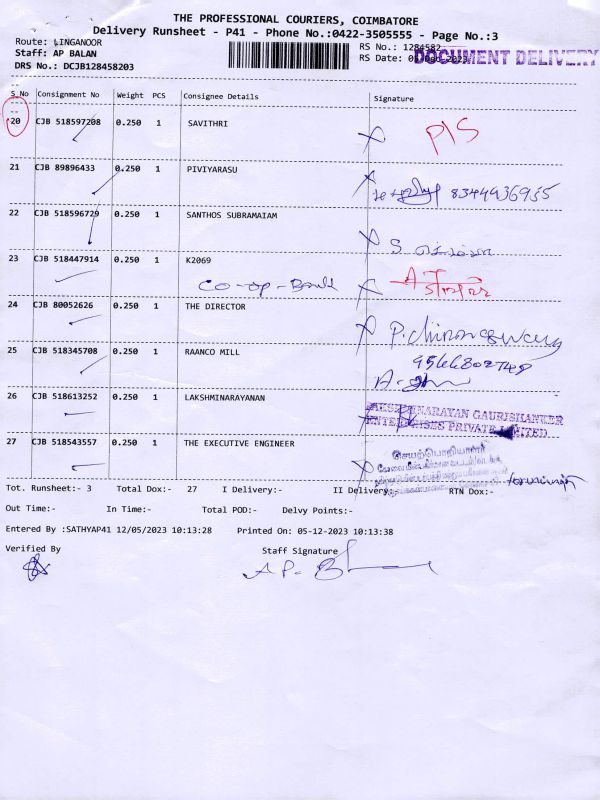 THE PROFESSIONAL COURIERS, COIMBATORE
Delivery Runsheet - P41 - Phone No.:0422-3505555 - Page No.:3
Route: LINGANOOR
RS No.: 1284582
Staff: AP BALAN
RS Date: 05-Dec-2023
DOCUMENT DELIVERY
DRS No.: DCJB128458203
S_No Consignment No Weight PCS Consignee Details Signature
20 CJB 518597208 0.250 1 SAVITHRI P/S
21 CJB 89896433 0.250 1 PIVIYARASU 8344936955
22 CJB 518596729 0.250 1 SANTHOS SUBRAMAIAM
23 CJB 518447914 0.250 1 K2069
Co-op-Bank
24 CJB 80052626 0.250 1 THE DIRECTOR
9566802748
25 CJB 518345708 0.250 1 RAANCO MILL
26 CJB 518613252 0.250 1 LAKSHMINARAYANAN
LAKSHMINARAYAN GAURISHANKER
ENTERPRISES PRIVATE LIMITED
27 CJB 518543557 0.250 1 THE EXECUTIVE ENGINEER
செயற்பொறியாளர்
Tot. Runsheet:- 3 Total Dox:- 27 I Delivery:- II Delivery:- RTN Dox:-
Out Time:- In Time:- Total POD:- Delvy Points:-
Entered By :SATHYAP41 12/05/2023 10:13:28 Printed On: 05-12-2023 10:13:38
Verified By Staff Signature
A P. B